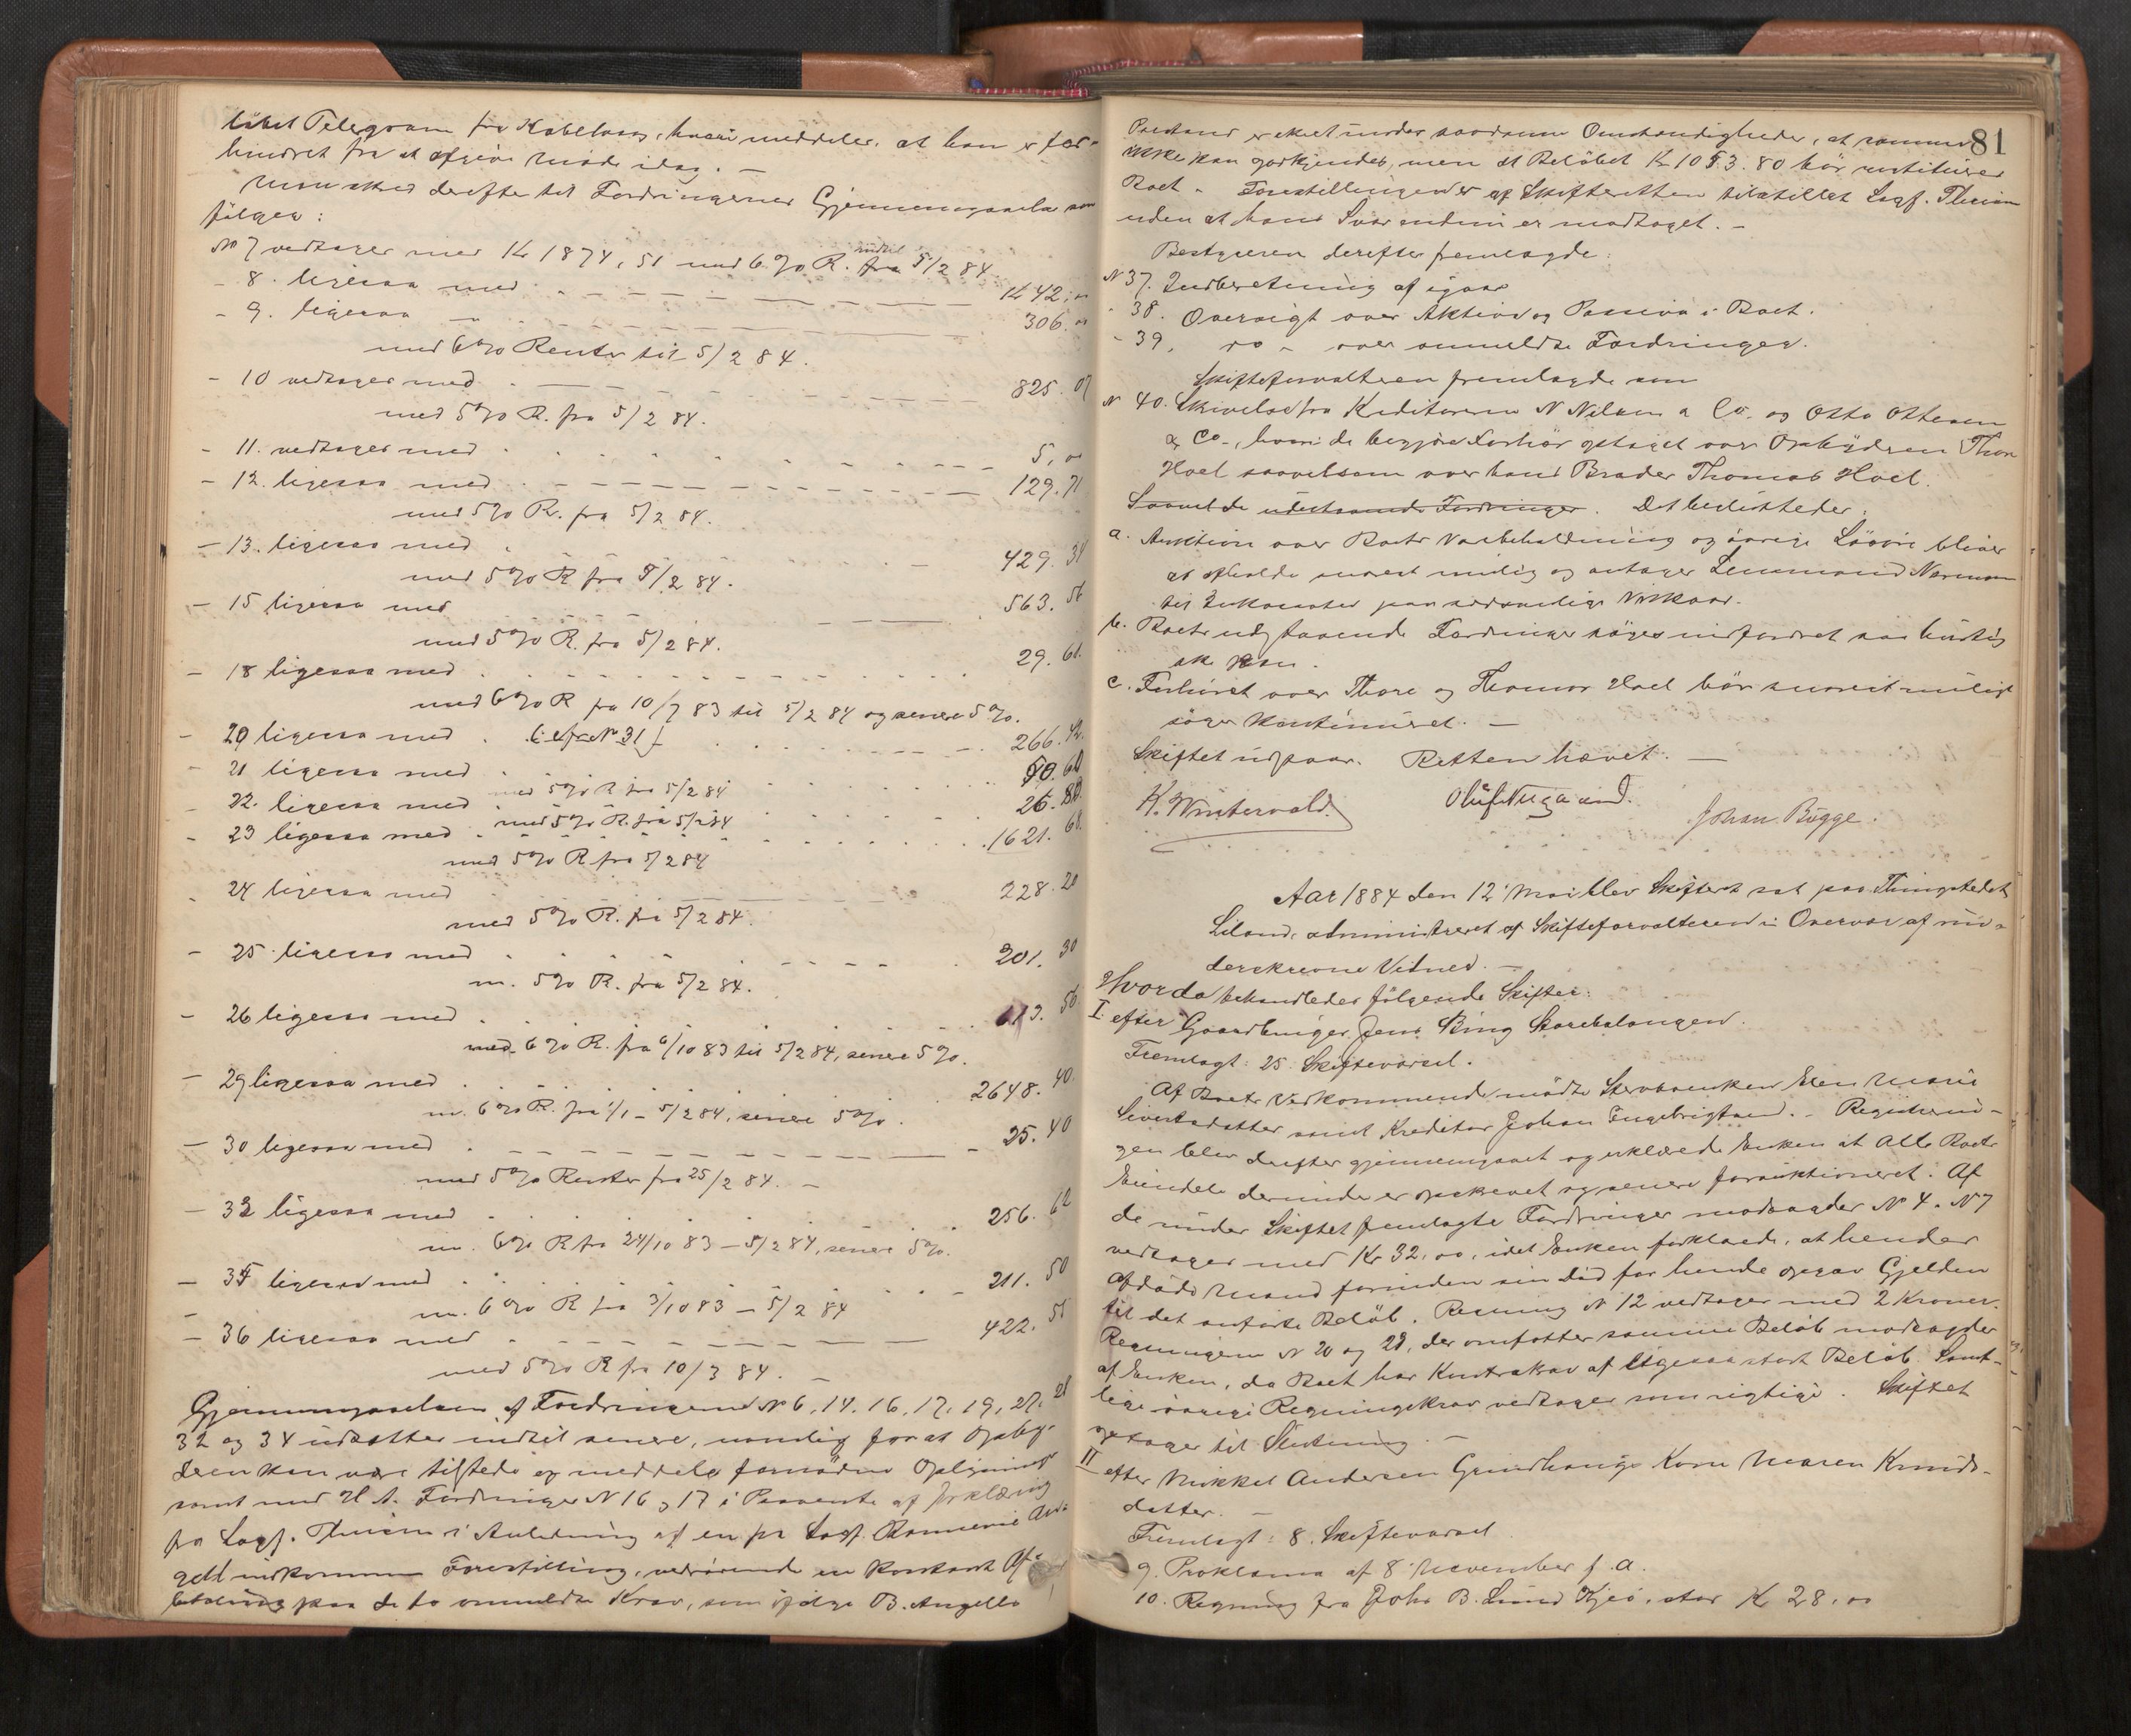 löbet Telegram fra Kobelvaag, hvori meddeles, at han er for-
hindret fra at afgive Möde idag. —
Man skred derefter til Fordringernes Gjennemgaaelse som
fölger:
No 7 vedtages med Kr 1874,51 med 6% R. indtil 5/2 84.
- 8. ligesaa med Kr 42,00
- 9. ligesaa — 306.00
med 6% Renter til 5/2 84.
- 10 vedtages med 825.07
med 5% R. fra 5/2 84.
- 11. vedtages med 5,00
- 12. ligesaa med 129.71
med 5% R. fra 5/2 84.
- 13. ligesaa med 429.34
med 5% R fra 5/2 84.
- 15 ligesaa med 563.56
med 5% R. fra 5/2 84.
- 18 ligesaa med 29.61
med 6% R fra 10/7 83 til 5/2 84 og senere 5%.
- 20 ligesaa med (cfr No 31) 266.42
- 21 ligesaa med 50.60
med 5% R fra 5/2 84
- 22. ligesaa med 26.80
med 5% R. fra 5/2 84
- 23 ligesaa med 1621.68
med 5% R fra 5/2 84
- 24 ligesaa med 228.20
med 5% R. fra 5/2 84.
- 25 ligesaa med 201.30
m. 5% R. fra 5/2 84.
- 26 ligesaa med 613.56
med 6% R. fra 6/10 83 til 5/2 84, senere 5%.
- 29 ligesaa med 2648.40
m. 6% R. fra 1/1 - 5/2 84, senere 5%.
- 30 ligesaa med 25.40
med 5% Renter fra 25/2 84. —
- 33 ligesaa med 256.62
m. 6% R fra 24/10 83 — 5/2 84, senere 5%.
- 35 ligesaa med 211.50
m. 6% R fra 3/10 83 — 5/2 84
- 36 ligesaa med 422.55
med 5% R fra 10/3 84. —
Gjennemgaaelsen af Fordringerne No 6, 14, 16, 17, 19, 27, 28
32 og 34 udsættes indtil senere, nemlig for at Opby-
deren kan være tilstede og meddele fornödne Oplysninger
samt med H. t. Fordringer No 16 og 17 i Paavente af Forklaring
fra Sagf. i Anledning af en fra Sagf.
indkommen Forestilling, vedrörende en kontant Af-
betaling paa de to anmeldte Krav, som ifölge B. Angells
81
Paastand er skeet under saadanne Omstændigheder, at samme
ikke kan godkjendes, men at Belöbet Kr 1053.80 bör restitueres
Boet. Forestillingen er af Skifteretten tilstillet Sagf.
uden at hans Svar endnu er modtaget. —
Bestyreren derefter fremlagde:
No 37. Indberetning af igaar
- 38. Oversigt over Aktiva og Passiva i Boet.
- 39. do - over anmeldte Fordringer.
Skifteforvalteren fremlagde som
No 40. Skrivelse fra Kreditorerne N Nilsen & Co. og Otto Ottesen
& Co., hvori de begjære Forhör optaget over Opbyderen Thore
Hoel saavelsom over hans Broder Thomas Hoel.
Saavel de udestaaende Fordringer. Det besluttedes:
a. Auktion over Boets Varebeholdning og övrige Lösöre bliver
at afholde snarest mulig og antages Lensmand Normann
til Inkassator paa sedvanlige Vilkaar.
b. Boets udestaaende Fordringer söges indfordret saa hurtig
ske kan.
c. Forhöret over Thore og Thomas Hoel bör snarest muligt
söges kontinueret. —
Skiftet udstaar. Retten hævet. —
K. Wintervold. Oluf Nygaard. Johan Bugge.
Aar 1884 den 12 Mai blev Skifteret sat paa Thingstedet
Liland, administreret af Skifteforvalteren i Overvær af un-
derskrevne Vidner. —
Hvorda behandledes fölgende Skifter:
I efter Gaardbruger Jens
Fremlagt: 25. Skiftevarsel.
Af Boets Vedkommende mödte Stervboenken Elen Marie
Sivertsdatter samt Kreditor Johan Ingebrigtsen. — Registerin-
gen blev derefter gjennemgaaet og erklærede Enken at alle Boets
Eiendele derunder er opskrevet og senere forauktioneret. Af
de under Skiftet fremlagte Fordringer modsagdes No 4. No 7
vedtages med Kr 32.00, idet Enken forklarede, at hendes
afdöde Mand forinden sin Död for hende opgav Gjelden
til det anförte Belöb. Regning No 12 vedtages med 2 Kroner.
Regningerne No 20 og 21, der omfatter samme Belöb modsagdes
af Enken, da Boet har Kontrakrav af ligesaa stort Belöb. Samt-
lige övrige Regningskrav vedtages som rigtige. Skiftet
optages til Slutning. —
II efter Mikkel Andersen Kone Maren Knuds-
datter. —
Fremlagt: 8. Skiftevarsel
9. Proklama af 8 November f. A.
10. Regning fra Johs B. Lund Kjeö, stor Kr 28.00